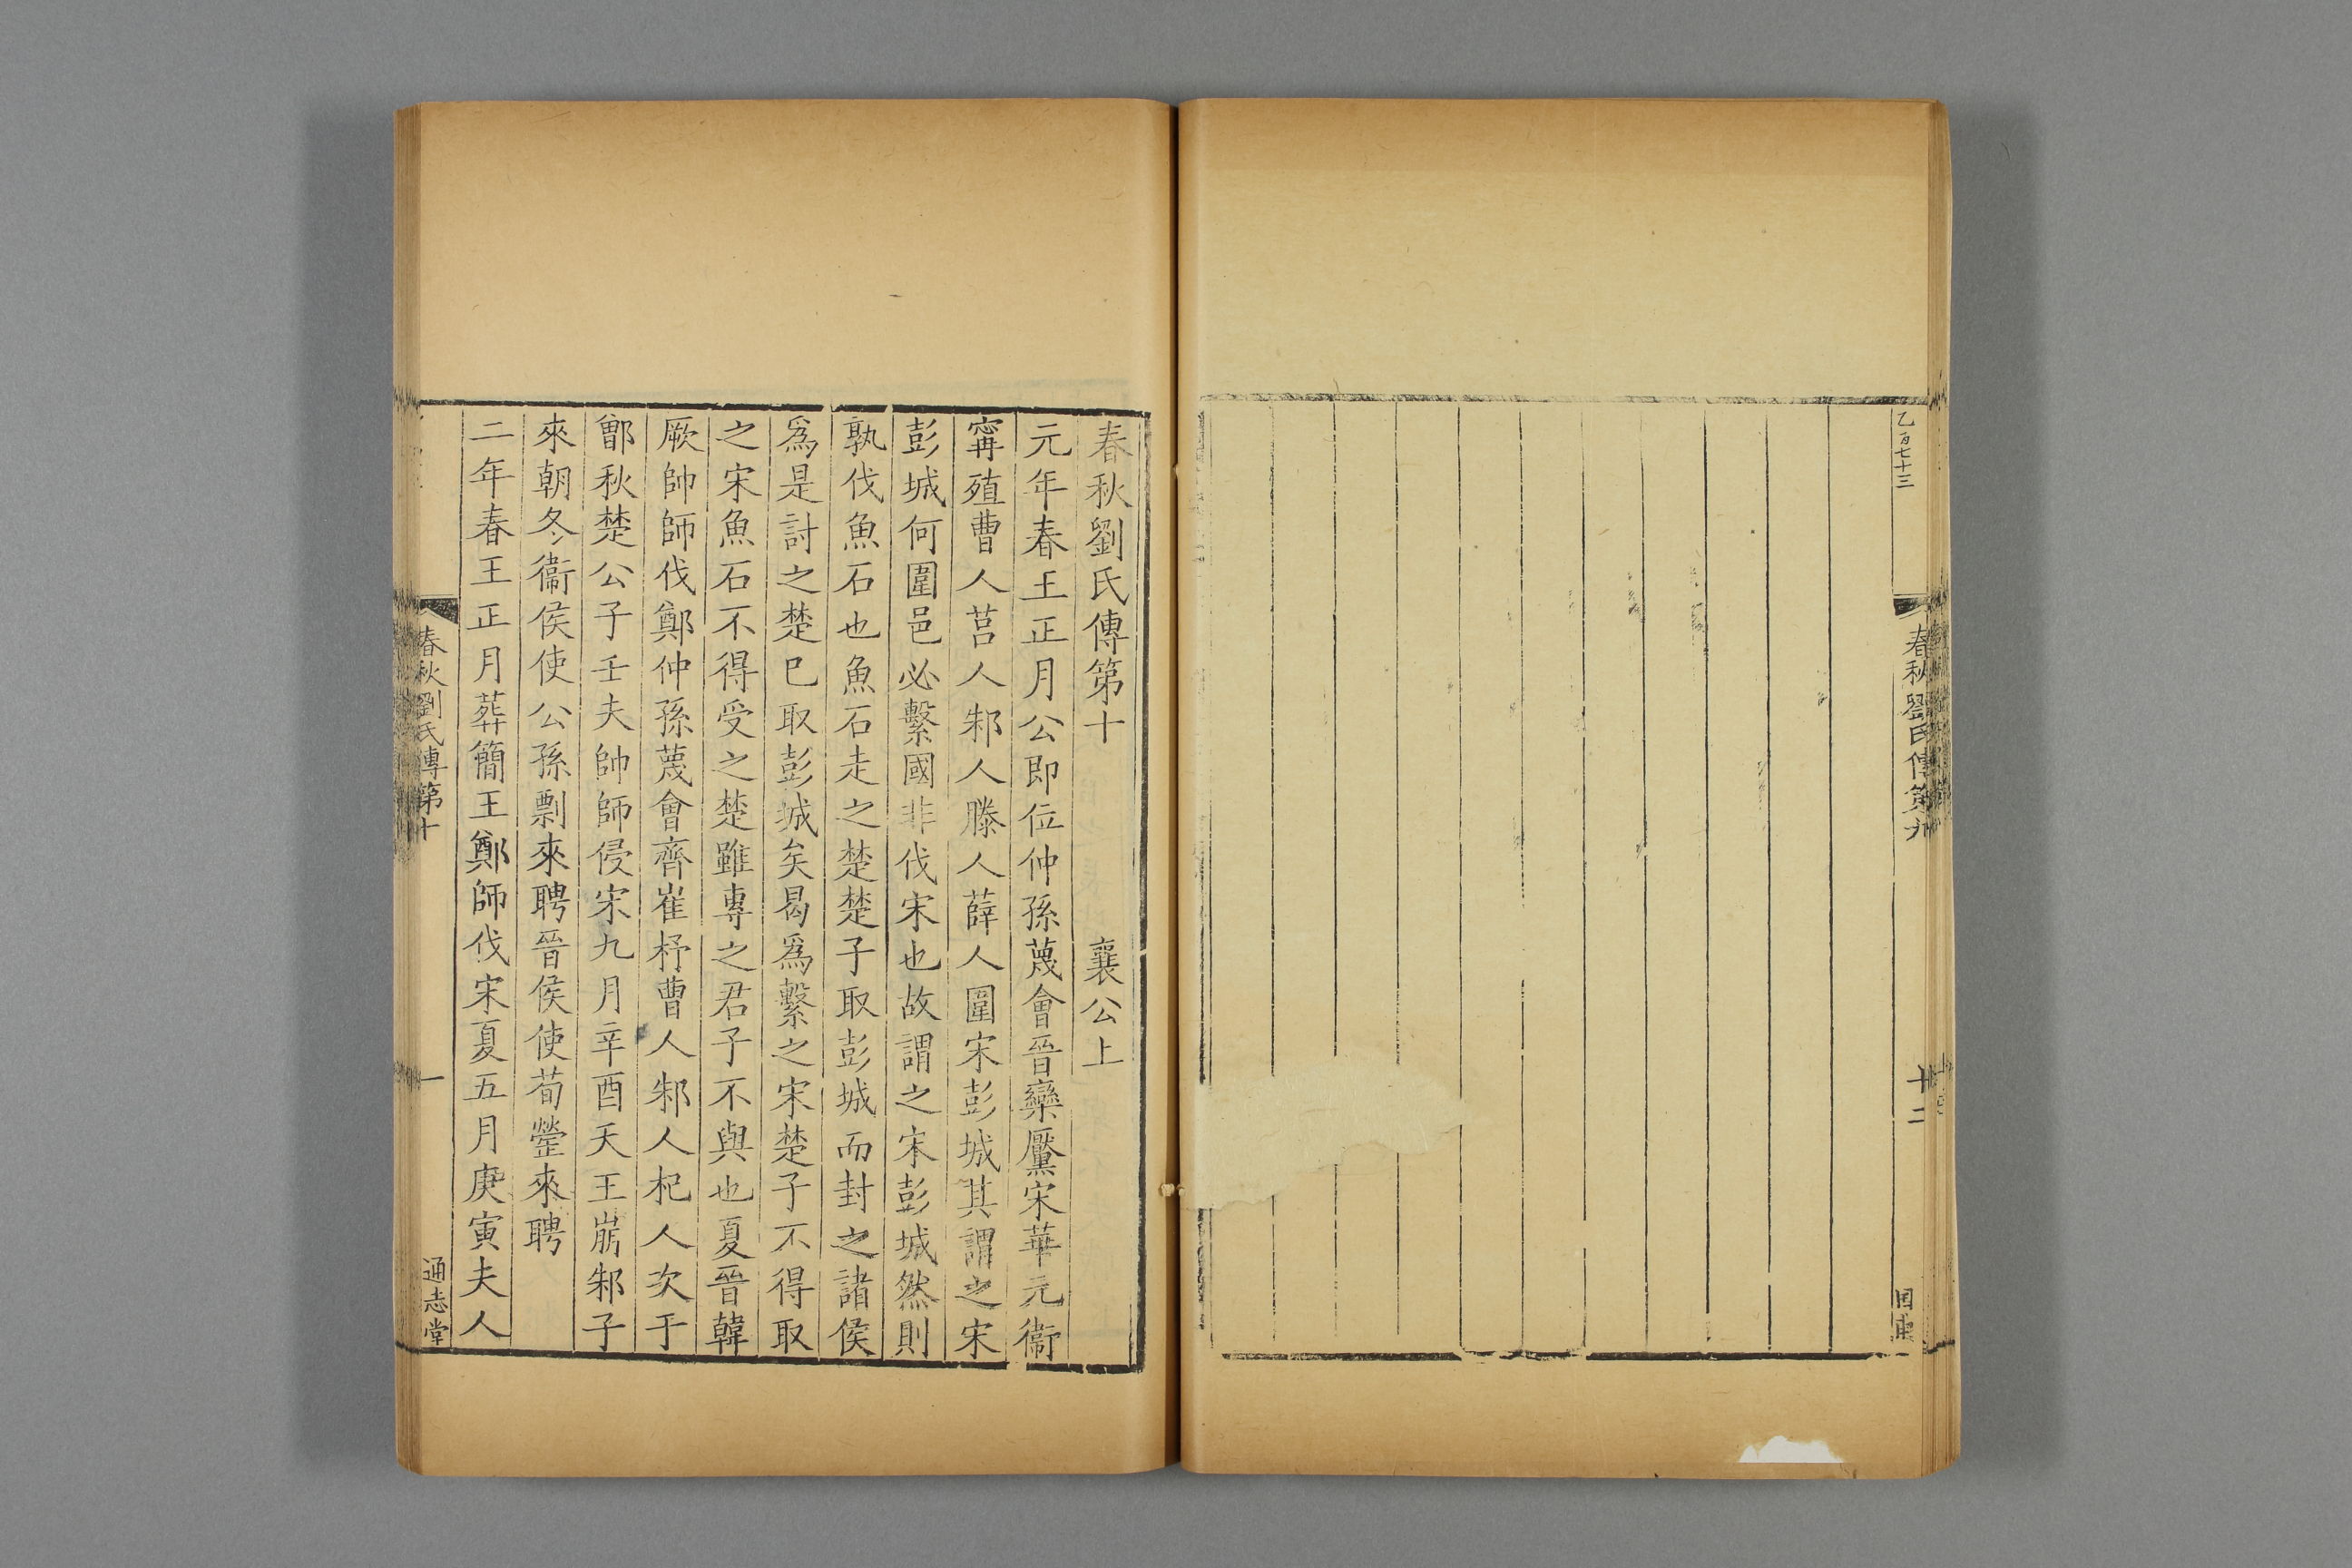 乙百七十三
春秋劉氏傳第九
十二
春秋劉氏傳第十 襄公上
元年春王正月公即位仲孫蔑會晉欒黶宋華元衞
甯殖曹人莒人邾人滕人薛人圍宋彭城其謂之宋
彭城何圍邑必繫國非伐宋也故謂之宋彭城然則
孰伐魚石也魚石走之楚楚子取彭城而封之諸侯
爲是討之楚巳取彭城矣曷爲繫之宋楚子不得取
之宋魚石不得受之楚雖專之君子不與也夏晉韓
厥帥師伐鄭仲孫蔑會齊崔杼曹人邾人杞人次于
鄫秋楚公子壬夫帥師侵宋九月辛酉天王崩邾子
來朝冬衞侯使公孫剽來聘晉侯使荀罃來聘
二年春王正月葬簡王鄭師伐宋夏五月庚寅夫人
春秋劉氏傳第十
一
通志堂